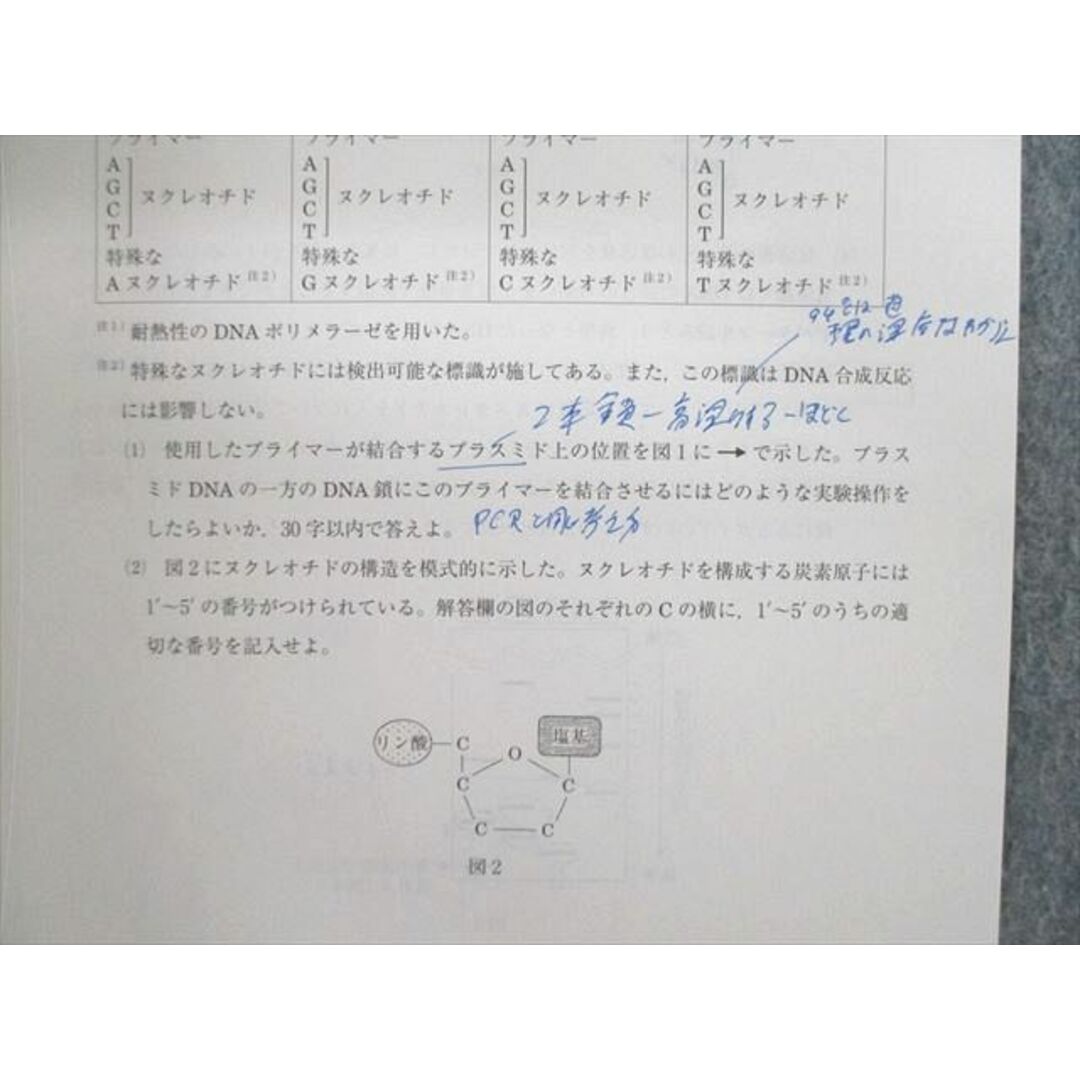 プライマー プライマー プライマー プライマー
A A A A
G ヌクレオチド G ヌクレオチド G ヌクレオチド G ヌクレオチド
C C C C
T T T T
特殊な 特殊な 特殊な 特殊な
Aヌクレオチド注2) Gヌクレオチド注2) Cヌクレオチド注2) Tヌクレオチド注2)
注1) 耐熱性のDNAポリメラーゼを用いた。
注2) 特殊なヌクレオチドには検出可能な標識が施してある。また，この標識はDNA合成反応
には影響しない。
2本鎖
(1) 使用したプライマーが結合するプラスミド上の位置を図1に→で示した。プラス
ミドDNAの一方のDNA鎖にこのプライマーを結合させるにはどのような実験操作を
したらよいか，30字以内で答えよ。 PCRと同じ考え方
(2) 図2にヌクレオチドの構造を模式的に示した。ヌクレオチドを構成する炭素原子には
1′～5′の番号がつけられている。解答欄の図のそれぞれのCの横に，1′～5′のうちの適
切な番号を記入せよ。
リン酸 C O 塩基
C C
C C
図2